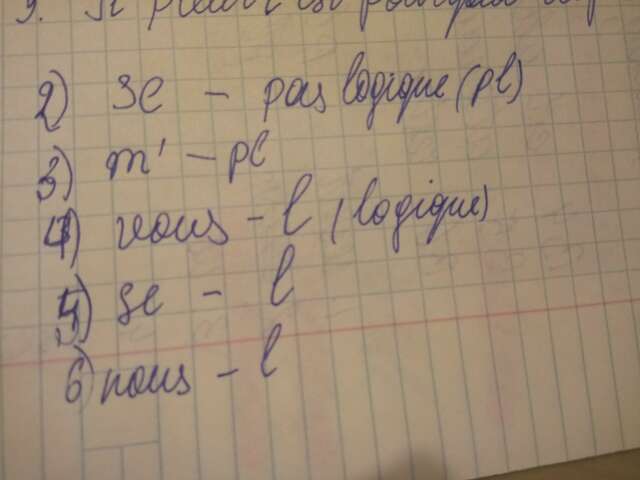 2) se – pas logique (pl)
3) m' – pl
4) vous – l (logique)
5) se – l
6) nous – l